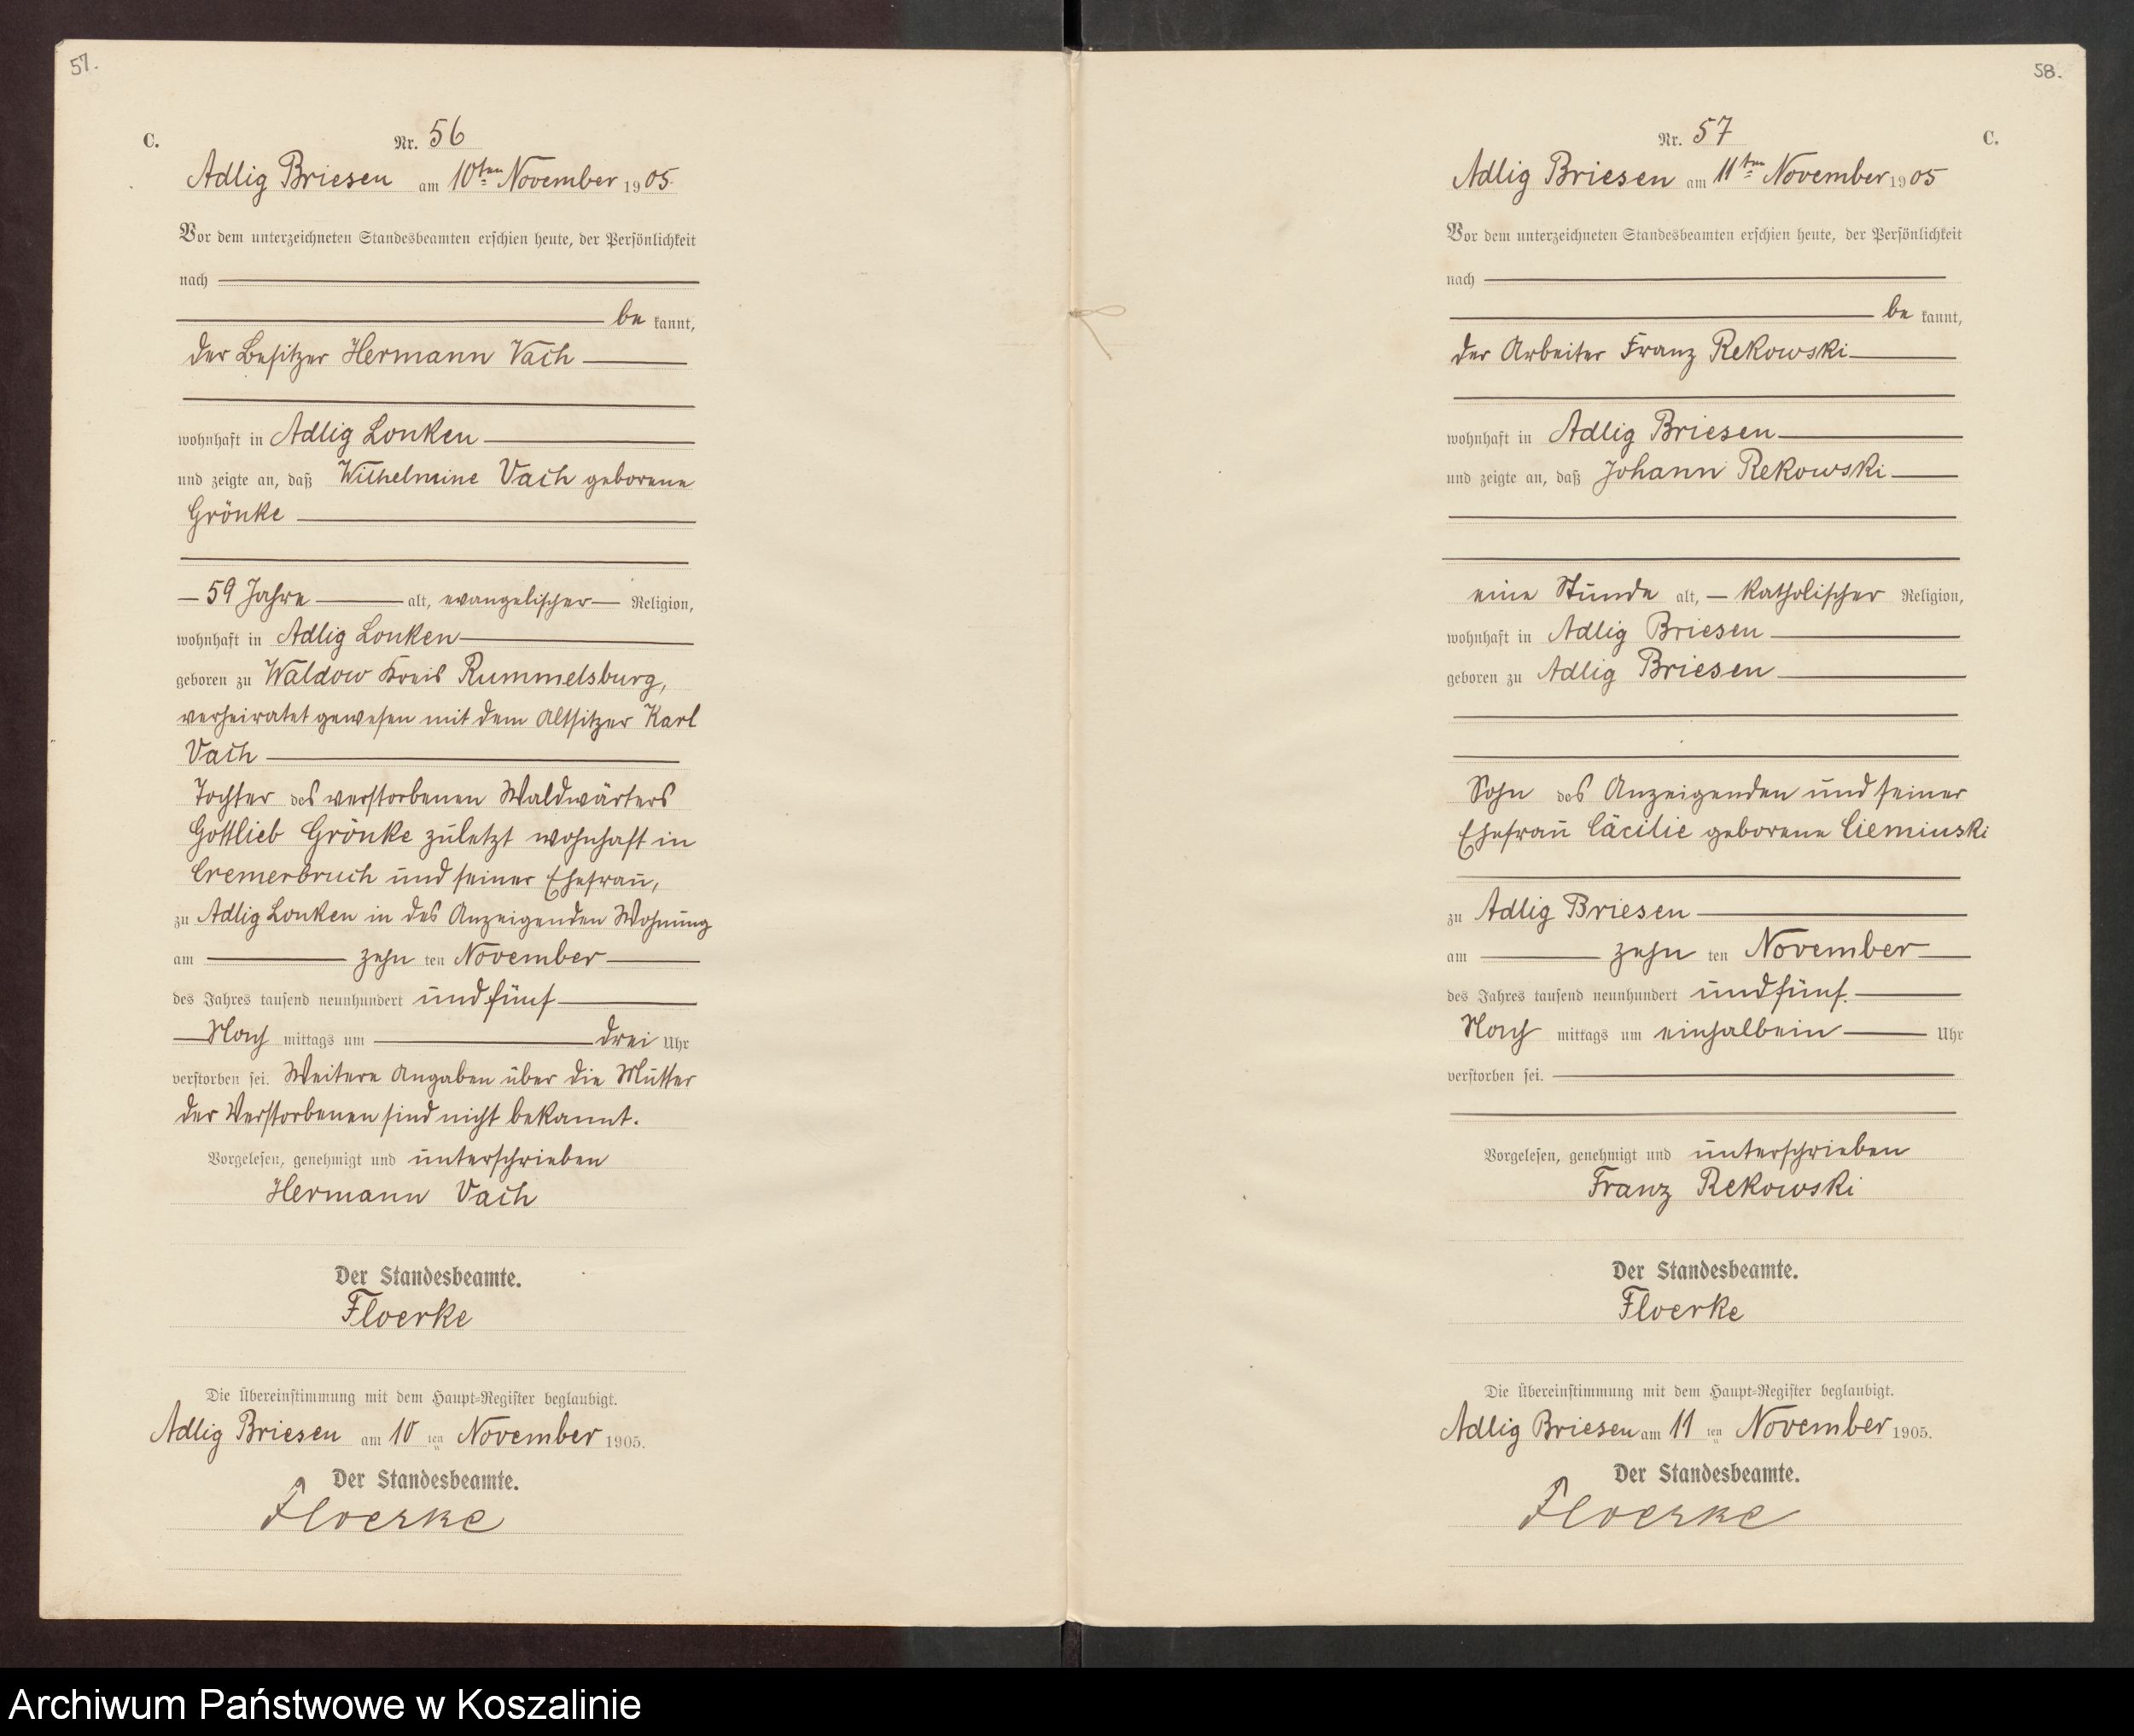 57.
C.
Nr. 56
Adlig Briesen am 10ten November 1905.
Vor dem unterzeichneten Standesbeamten erschien heute, der Persönlichkeit
nach
be kannt,
der Besitzer Hermann Vach
wohnhaft in Adlig Lonken
und zeigte an, daß Wilhelmine Vach geborene
Grönke
59 Jahre alt, evangelischer Religion,
wohnhaft in Adlig Lonken
geboren zu Waldow Kreis Rummelsburg,
verheiratet gewesen mit dem Altsitzer Karl
Vach
Tochter des verstorbenen Waldwärters
Gottlieb Grönke zuletzt wohnhaft in
Cremerbruch und seiner Ehefrau,
zu Adlig Lonken in des Anzeigenden Wohnung
am zehn ten November
des Jahres tausend neunhundert und fünf
Nach mittags um drei Uhr
verstorben sei. Weitere Angaben über die Mutter
der Verstorbenen sind nicht bekannt.
Vorgelesen, genehmigt und unterschrieben
Hermann Vach
Der Standesbeamte.
Floerke
Die Übereinstimmung mit dem Haupt-Register beglaubigt.
Adlig Briesen am 10 ten November 1905.
Der Standesbeamte.
Floerke
58.
Nr. 57
C.
Adlig Briesen am 11ten November 1905
Vor dem unterzeichneten Standesbeamten erschien heute, der Persönlichkeit
nach
be kannt,
der Arbeiter Franz Rekowski
wohnhaft in Adlig Briesen
und zeigte an, daß Johann Rekowski
eine Stunde alt, katholischer Religion,
wohnhaft in Adlig Briesen
geboren zu Adlig Briesen
Sohn des Anzeigenden und seiner
Ehefrau Cäcilie geborene Cieminski
zu Adlig Briesen
am zehn ten November
des Jahres tausend neunhundert und fünf
Nach mittags um einhalbein Uhr
verstorben sei.
Vorgelesen, genehmigt und unterschrieben
Franz Rekowski
Der Standesbeamte.
Floerke
Die Übereinstimmung mit dem Haupt-Register beglaubigt.
Adlig Briesen am 11 ten November 1905.
Der Standesbeamte.
Floerke
Archiwum Państwowe w Koszalinie